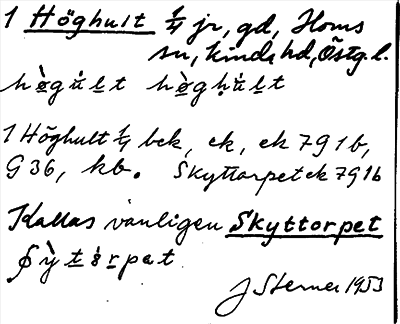 1 Höghult 1/4 jr, gd, Horns
sn, Kinda hd, Östg. l.
1 Höghult 1/4 bck, ek, ek 791b,
G 36, kb. Skyttorpet ek 791b
Kallas vanligen Skyttorpet
J Sterner 1953